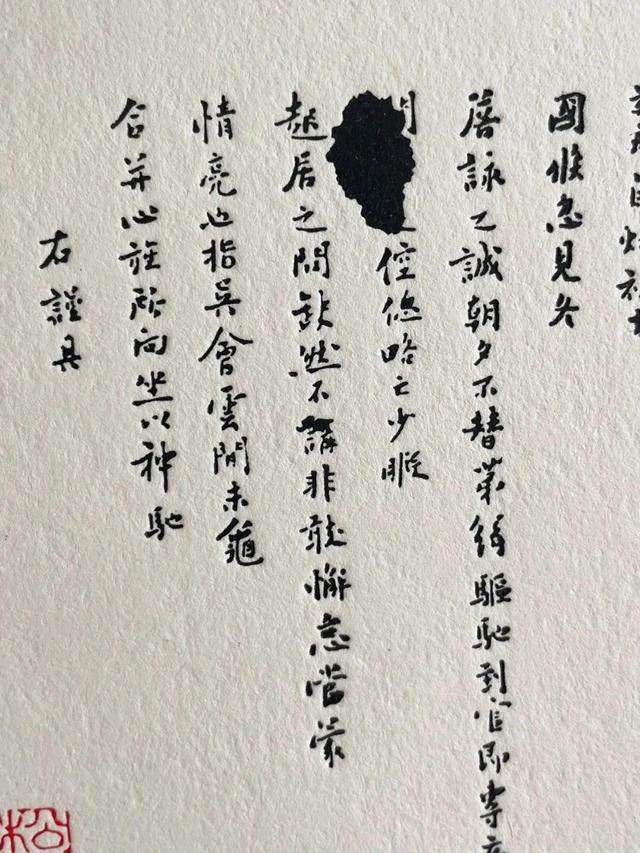 候見
詠之誠朝夕不替業緣驅馳到官即
倥傯略亡少暇
起居之問缺然不講非敢懈怠當蒙
情亮也指吳會雲間未龜
合并心旌所向坐以神馳
右謹具